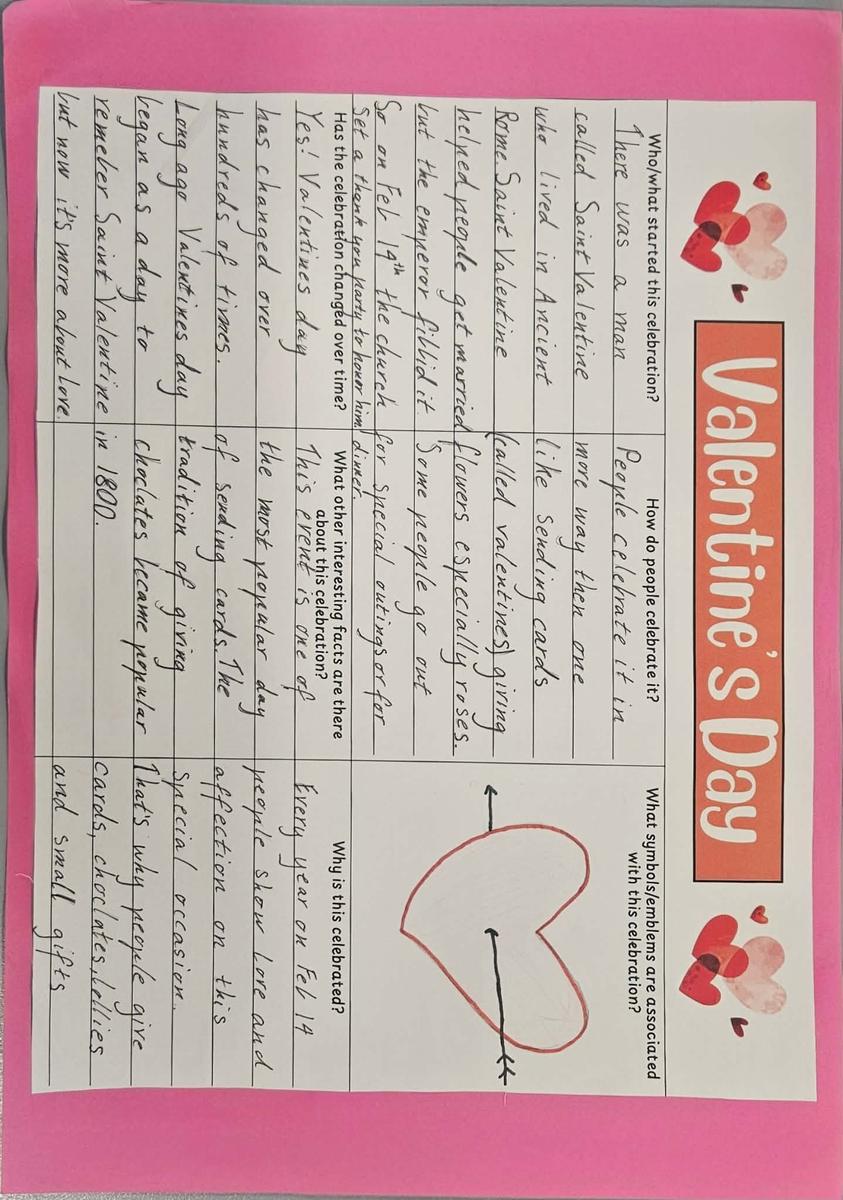 Valentine's Day
Who/what started this celebration?
There was a man
called Saint Valentine
who lived in Ancient
Rome Saint Valentine
helped people get married
but the emperor fibbid it.
So on Feb 14th the church
Set a thank you party to honor him
How do people celebrate it?
People celebrate it in
more way then one
like sending cards
(called valentines) giving
flowers especially roses.
Some people go out
for special outings or for
dinner.
What symbols/emblems are associated
with this celebration?
Has the celebration changed over time?
Yes! Valentines day
has changed over
hundreds of times.
Long ago Valentines day
began as a day to
remeber Saint Valentine
but now it's more about Love.
What other interesting facts are there
about this celebration?
This event is one of
the most popular day
of sending cards. The
tradition of giving
choclates became popular
in 1800.
Why is this celebrated?
Every year on Feb 14
people show love and
affection on this
special occasion.
That's why people give
cards, choclates, lellies
and small gifts